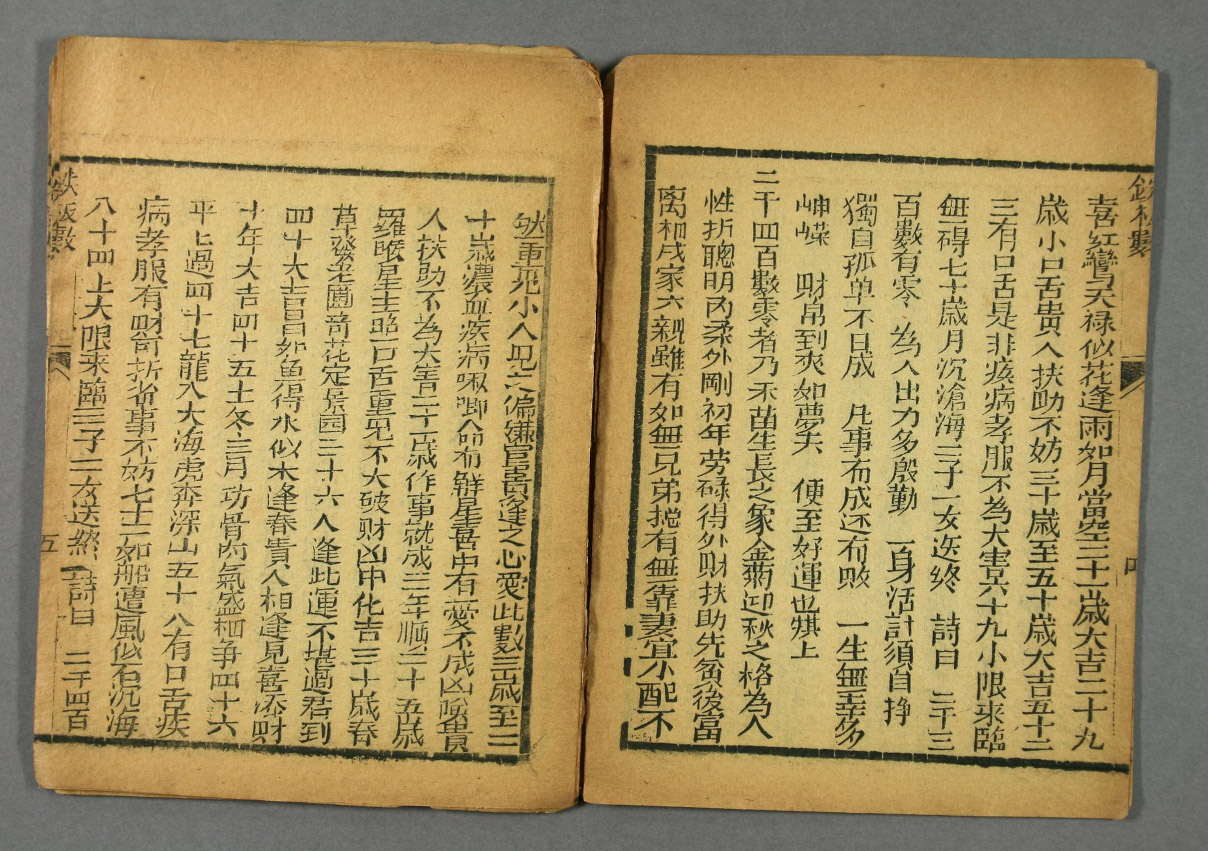 鉄板數
四
喜紅鸞天禄似花逢雨如月當空二十一歲大吉二十九
歲小口舌貴人扶助不妨三十歲至五十歲大吉五十二
三有口舌是非疾病孝服不為大害六十九小限來臨
無碍七十歲月沉滄海三子一女送終 詩曰 二千三
百數有零 為人出力多殷勤 一身活計須自挣
獨自孤單不日成 凡事有成还有敗 一生無幸多
崢嶸 財帛到爽如夢失 便至好運也難上
二千四百數零者乃禾苗生長之象金菊迎秋之格為人
性折聰明内柔外剛初年劳碌得外財扶助先貧後富
离祖成家六親雖有如無兄弟总有無靠妻宜小配不
然重死小人見之偏嫌官貴逢之心愛此數三歲至二
十歲濃血疾病啾唧命有觧星喜中有憂不成凶險貴
人扶助不為大害二十二歲作事就成三年順二十五歲
羅睺星主照口舌重見不大破財凶中化吉三十歲春
草發老園奇花定景园三十六人逢此運不堪過君到
四十大吉昌如魚得水似木逢春貴人相逢見喜添財
十年大吉四十五土冬三月功骨肉氣盛相争四十六
平七過四十七龍入大海虎奔深山五十八有口舌疾
病孝服有財可折省事不妨七十二如船遭風似石沉海
八十四上大限來臨三子二女送終 詩曰 二千四百
鉄板數
五